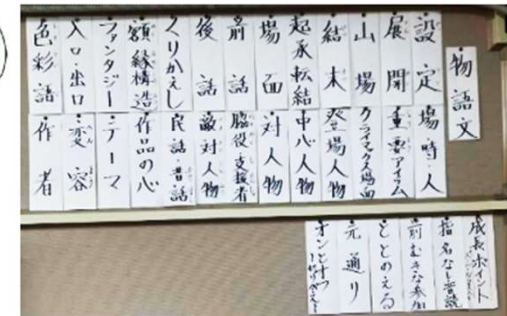 物語文
設定
場・時・人
展開
重要アイテム
山場
クライマックス場面
結末
登場人物
起承転結
中心人物
場面
対人物
前話
脇役・支援者
後話
敵対人物
くりかえし
民話・昔話
額縁構造
作品の心
ファンタジー
テーマ
入口・出口
変容
色彩語
作者
成長ポイント
指名なし音読
前むきな参加
ととのえる
元通り